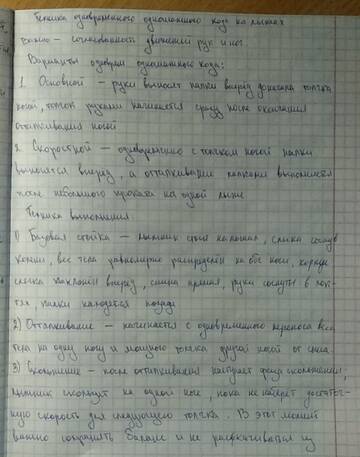 Техника одновременного одношажного хода на лыжах
Важно – согласованность движений рук и ног.
Варианты одноврем одношажного хода:
1. Основной – руки выносят палки вперёд до начала толчка
ногой, толчок руками начинается сразу после окончания
отталкивания ногой
2. Скоростной – одновременно с толчком ногой палки
выносятся вперёд, а отталкивание палками выполняется
после небольшого проката на одной лыже
Техника выполнения:
1) Базовая стойка – лыжник стоит на лыжах, слегка согнув
колени, вес тела равномерно распределён на обе ноги, корпус
слегка наклонён вперёд, спина прямая, руки согнуты в лок-
тях палки находятся позади
2) Отталкивание – начинается с одновременного переноса веса
тела на одну ногу и мощного толчка другой ногой от снега.
3) Скольжение – после отталкивания наступает фаза скольжения,
лыжник скользит на одной ноге, пока не наберёт достаточ-
ную скорость для следующего толчка. В этот момент
важно сохранять баланс и не раскачиваться из